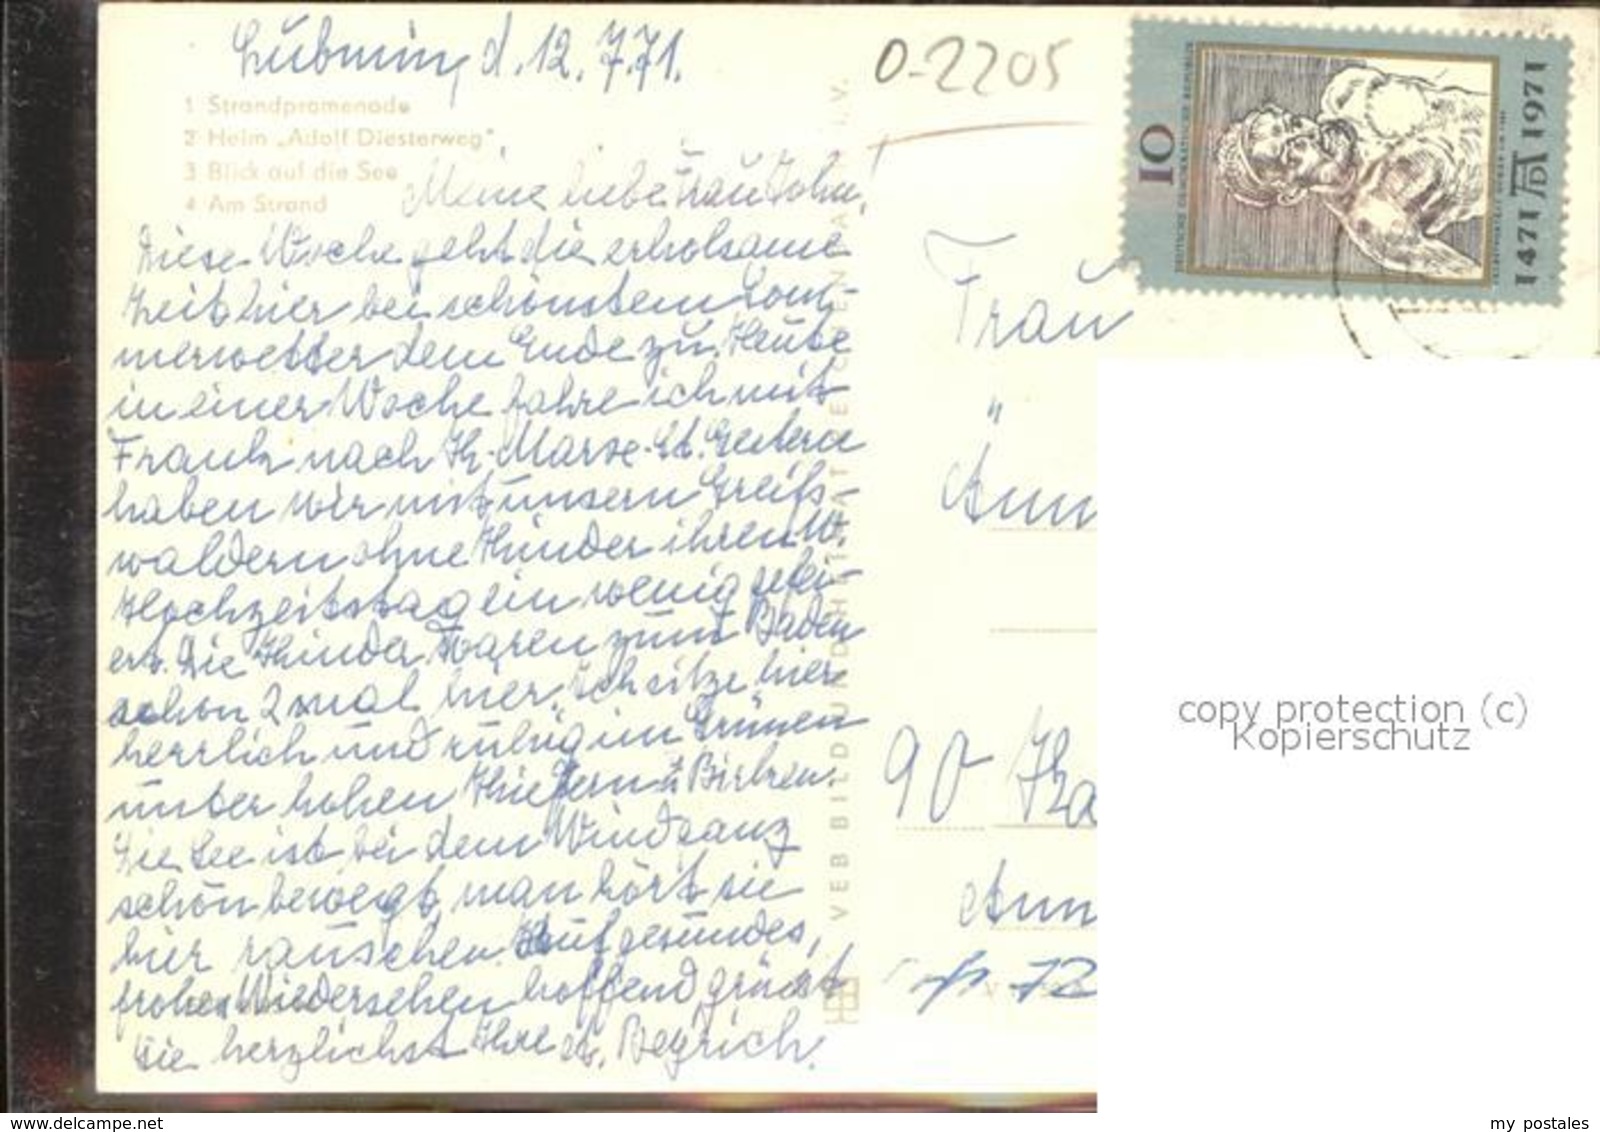 Lubmin, d. 12.7.71.
O-2205
1 Strandpromenade
2 Heim „Adolf Diesterweg"
3 Blick auf die See
4 Am Strand
Meine liebe Frau John!
Diese Woche geht die erholsame
Zeit hier bei schönstem Som-
merwetter dem Ende zu. Heute
in einer Woche fahre ich mit
Frank nach K.-Marx-St. Gestern
haben wir mit unsern Greifs-
waldern ohne Kinder ihren 10.
Hochzeitstag ein wenig gefei-
ert. Die Kinder waren zum Baden
schon 2 mal hier. Ich sitze hier
herrlich und ruhig im Grünen
unter hohen Kiefern u. Birken.
Die See ist bei dem Wind ganz
schön bewegt, man hört sie
hier rauschen. Auf gesundes,
frohes Wiedersehen hoffend grüßt
Sie herzlichst Ihre
VEB BILD UND HEIMAT REICHENBACH I. V.
10
DEUTSCHE DEMOKRATISCHE REPUBLIK
1471 1971
Frau
"
Ann
90 Ka
Ann
72
copy protection (c)
Kopierschutz
ak-ansichtskarten.de
my postales